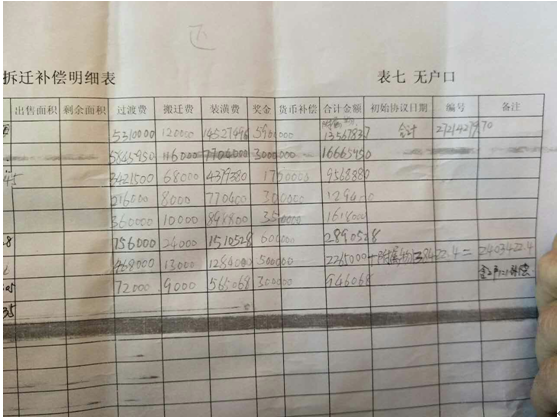 拆迁补偿明细表 表七 无户口
出售面积 剩余面积 过渡费 搬迁费 装潢费 奖金 货币补偿 合计金额 初始协议日期 编号 备注
5310000 12000 14527496 5900000 13567837 合计 27214279.70
5845950 116000 7704000 3000000 16665950
45 3421500 68000 4379380 1700000 9568880
616000 8000 770400 300000
360000 10000 848800 350000 1618000
8 756000 24000 1510528 600000 2890528
468000 13000 1284000 500000 2265000 +附属物 = 2403422.4
72000 9000 565068 300000 946068
35